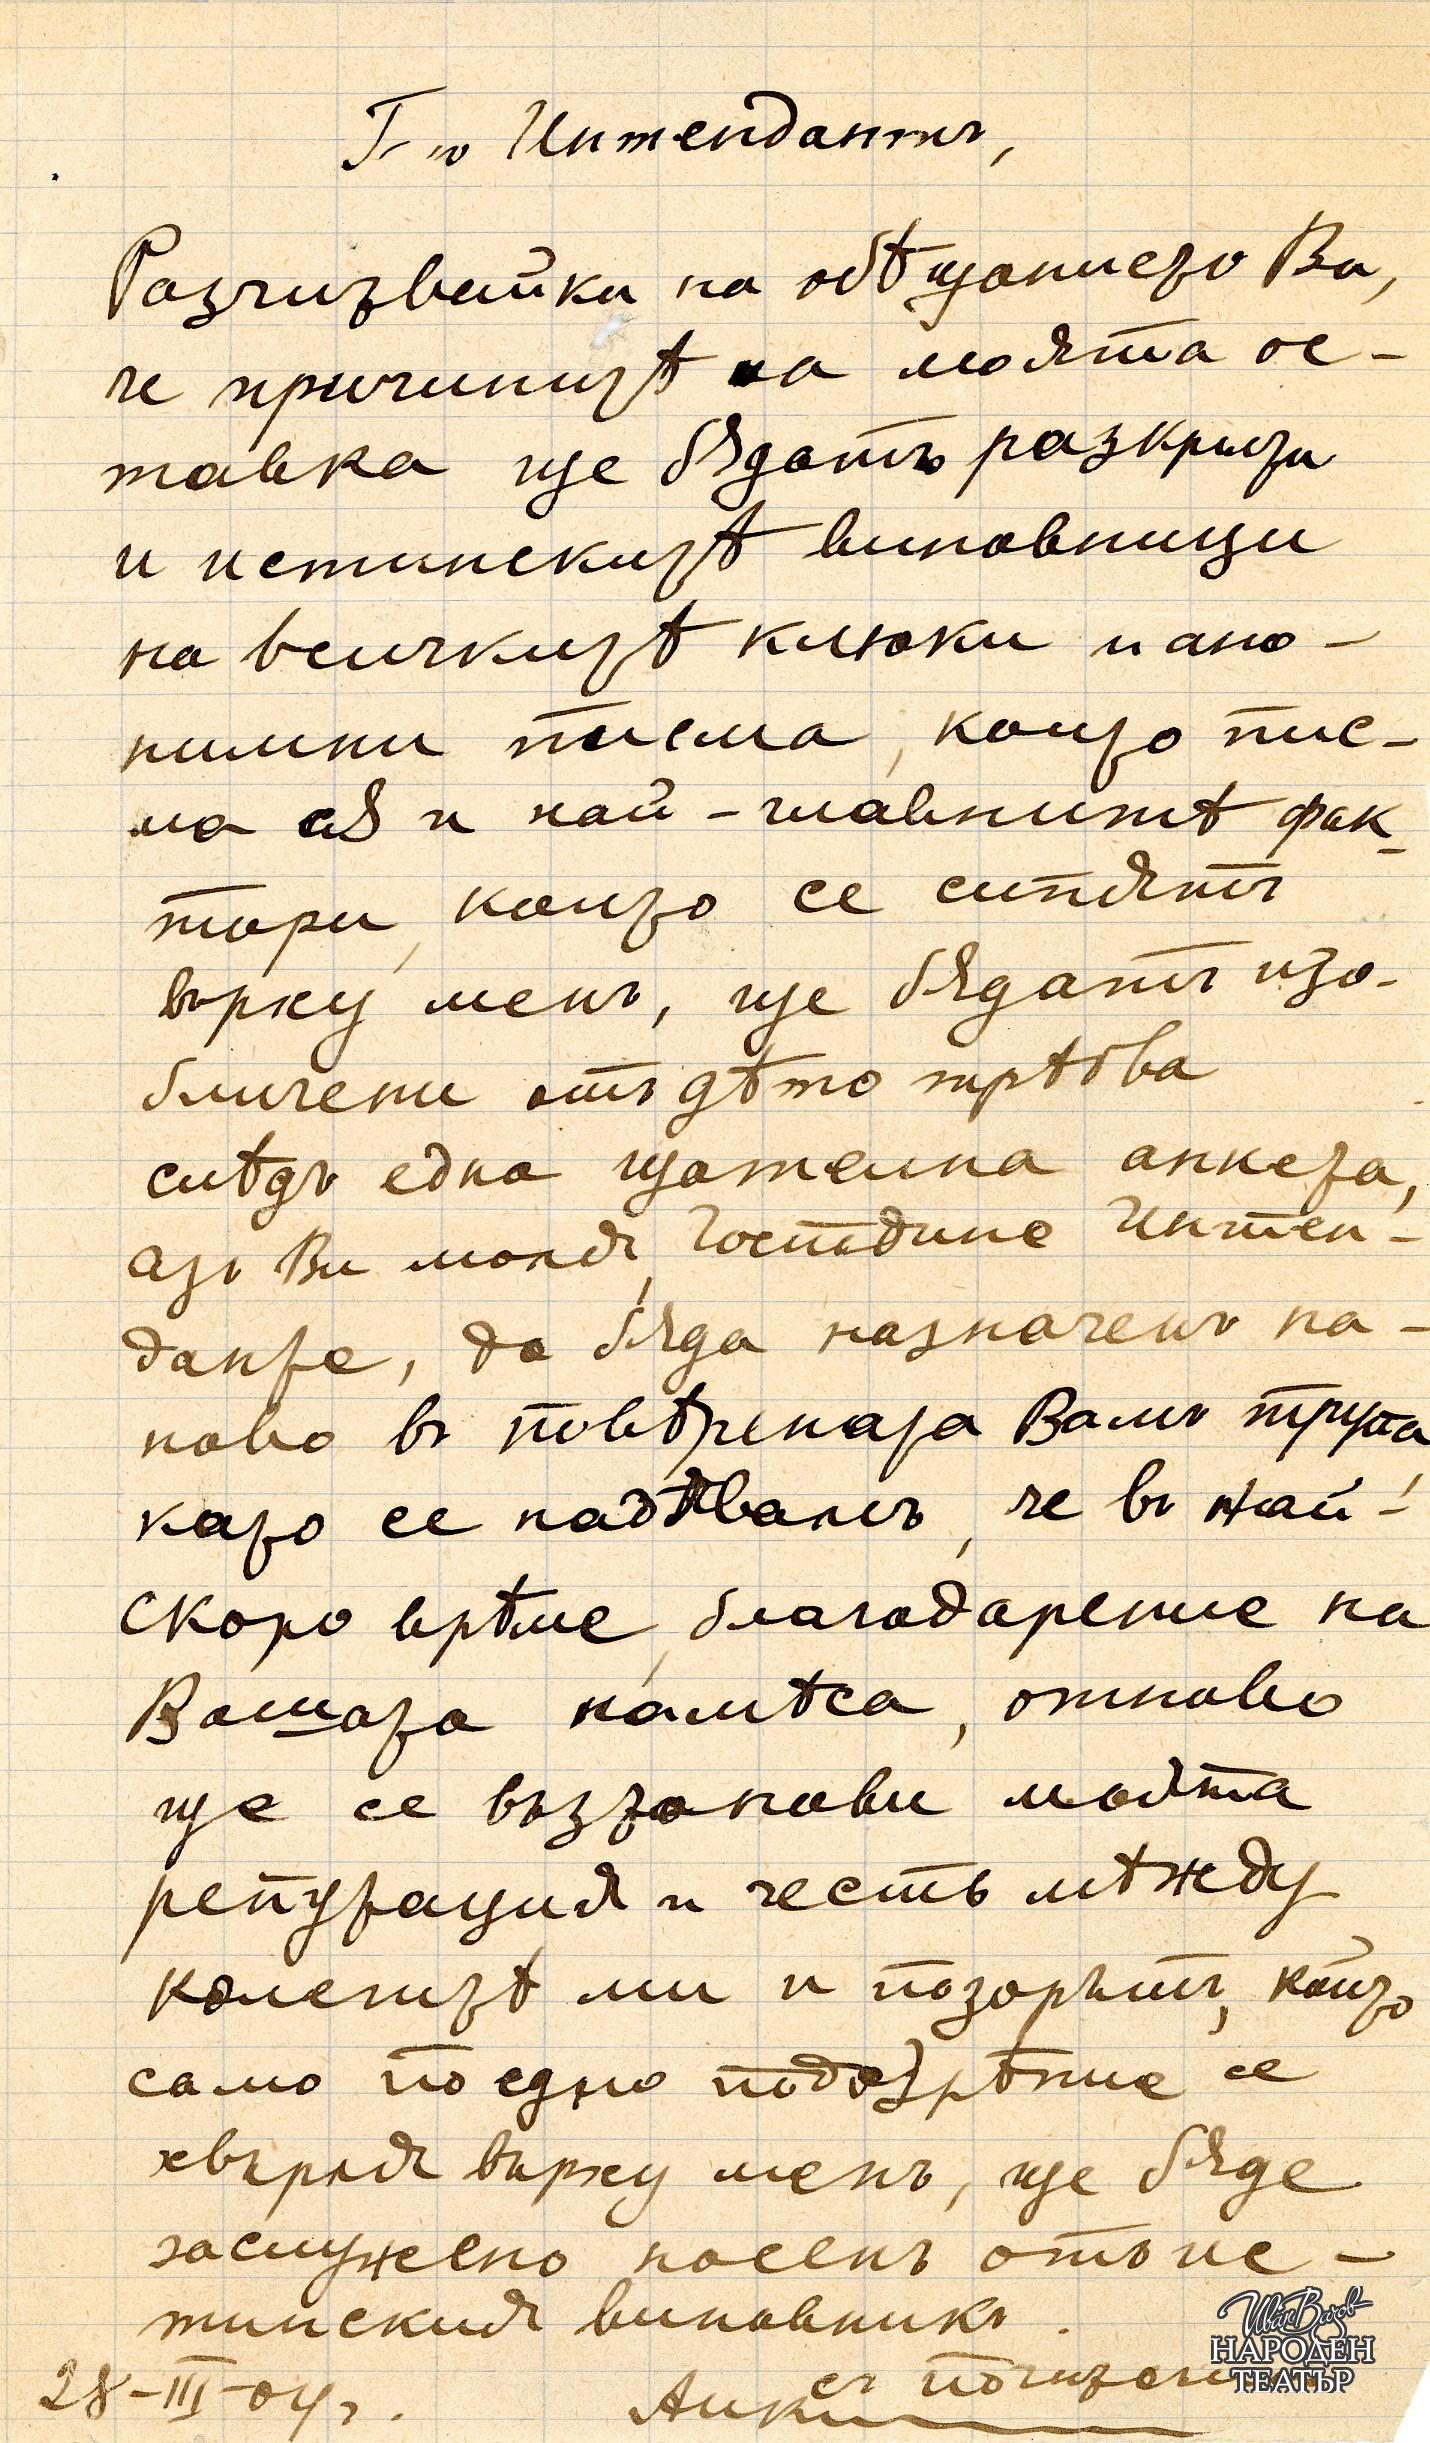 Г-нъ Интендантъ,
Разчитвайки на обѣщанието Ви,
че причинитѣ на моята ос-
тавка ще бѫдатъ разкрити
и истинскитѣ виновници
на всичкитѣ клюки и ано-
нимни писма, които пис-
ма сѫ и най-главнитѣ фак-
тори, които се сипятъ
върху менъ, ще бѫдатъ изо-
бличени отъ дѣто трѣбва
слѣдъ една щателна анкета,
азъ Ви моля, Господине Интен-
данте, да бѫда назначенъ на-
ново въ повѣрената Вамъ трупа
като се надѣвамъ, че въ най-
скоро врѣме, благодарение на
Вашата намѣса, отново
ще се възтанови моята
репутация и честь мѣжду
колегитѣ ми и позорътъ, който
само по едно подозрѣние се
хвърля върху менъ, ще бѫде
заслужено носенъ отъ ис-
тинския виновникъ.
28-III-04 г.
съ
Иван Вазов
НАРОДЕН
ТЕАТЪР